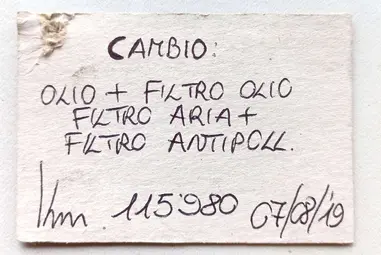 CAMBIO:
OLIO + FILTRO OLIO
FILTRO ARIA +
FILTRO ANTIPOLL.
Km. 115980 07/08/19